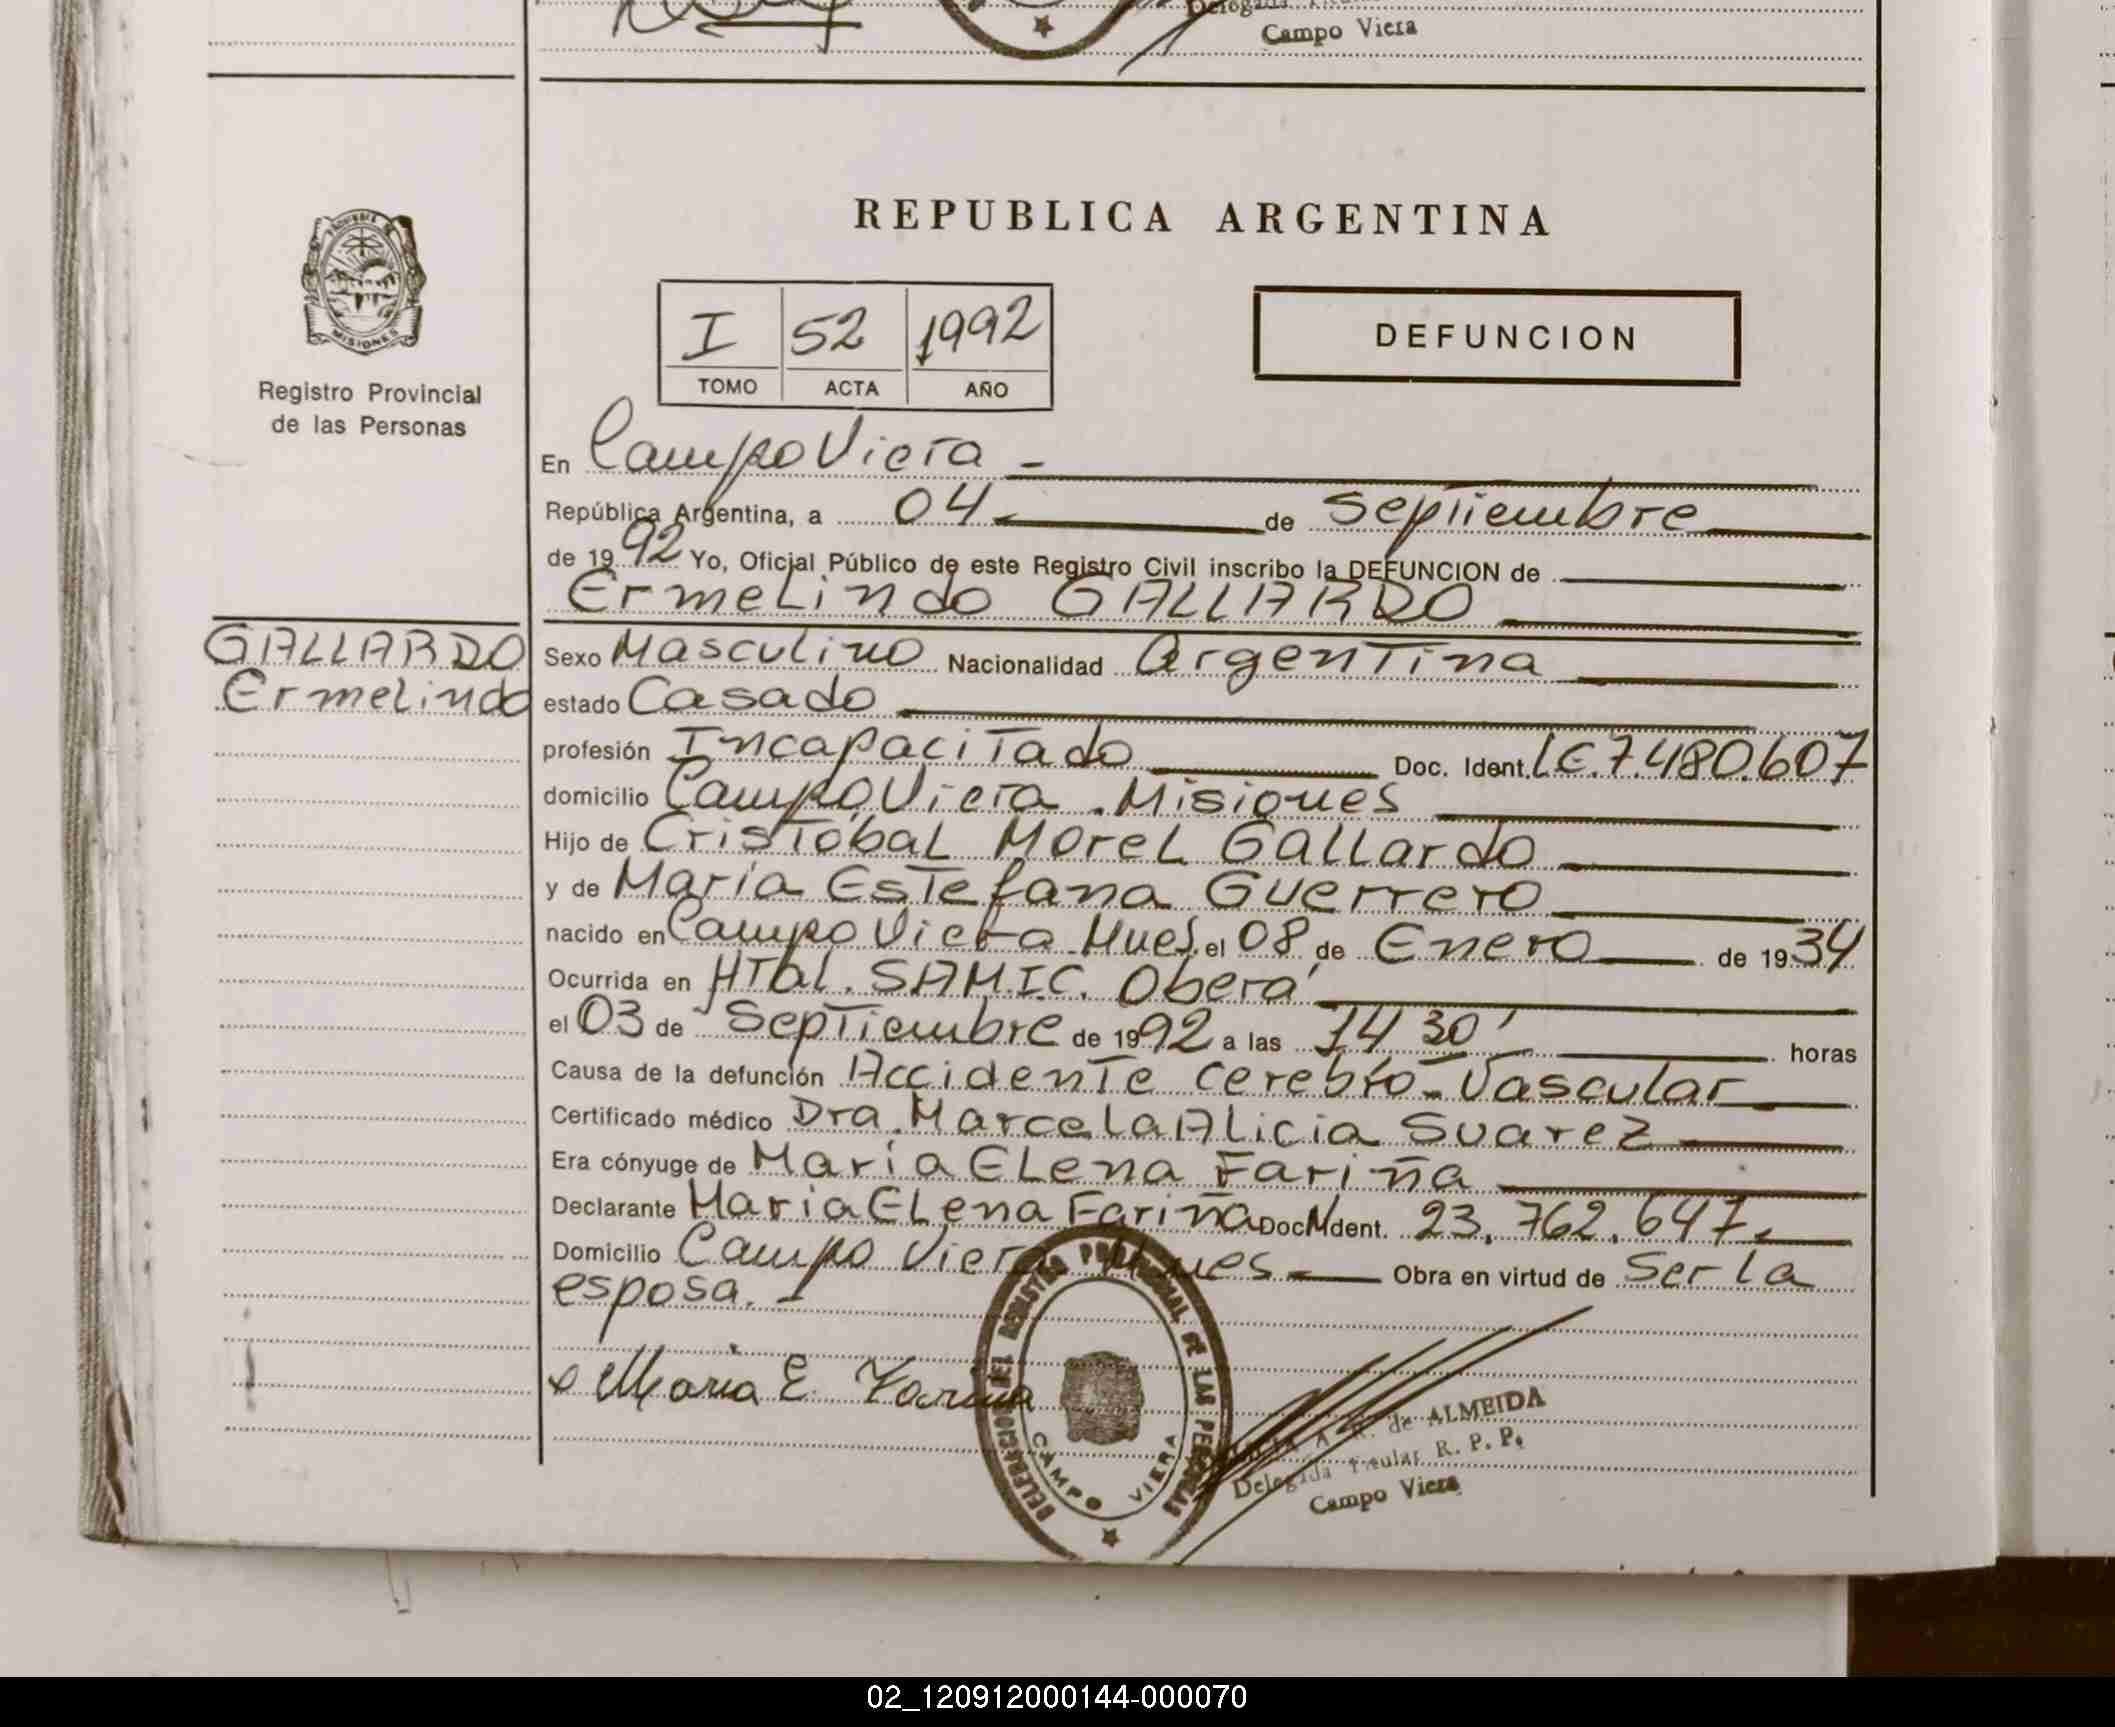 Campo Viera
REPUBLICA ARGENTINA
MISIONES
Registro Provincial
de las Personas
I 52 1992
TOMO ACTA AÑO
DEFUNCION
En Campo Viera -
República Argentina, a 04 de Septiembre
de 1992 Yo, Oficial Público de este Registro Civil inscribo la DEFUNCION de
Ermelindo GALLARDO
GALLARDO
Ermelindo
Sexo Masculino Nacionalidad Argentina
estado Casado
profesión Incapacitado Doc. Ident. LE.7.480.607
domicilio Campo Viera. Misiones
Hijo de Cristóbal Morel Gallardo
y de María Estefana Guerrero
nacido en Campo Viera Mnes. el 08 de Enero de 1934
Ocurrida en HTal. S.A.M.I.C. Oberá
el 03 de Septiembre de 1992 a las 14 30' horas
Causa de la defunción Accidente cerebro-Vascular
Certificado médico Dra. Marcela Alicia Suarez
Era cónyuge de María Elena Fariña
Declarante María Elena Fariña Doc. Ident. 23.762.647.
Domicilio Campo Viera Mnes. Obra en virtud de Ser la
esposa.
Maria E. Farina
DELEGACION DEL REGISTRO PROVINCIAL DE LAS PERSONAS
CAMPO VIERA
A. R. de ALMEIDA
Delegada Titular R. P. P.
Campo Viera
02_120912000144-000070